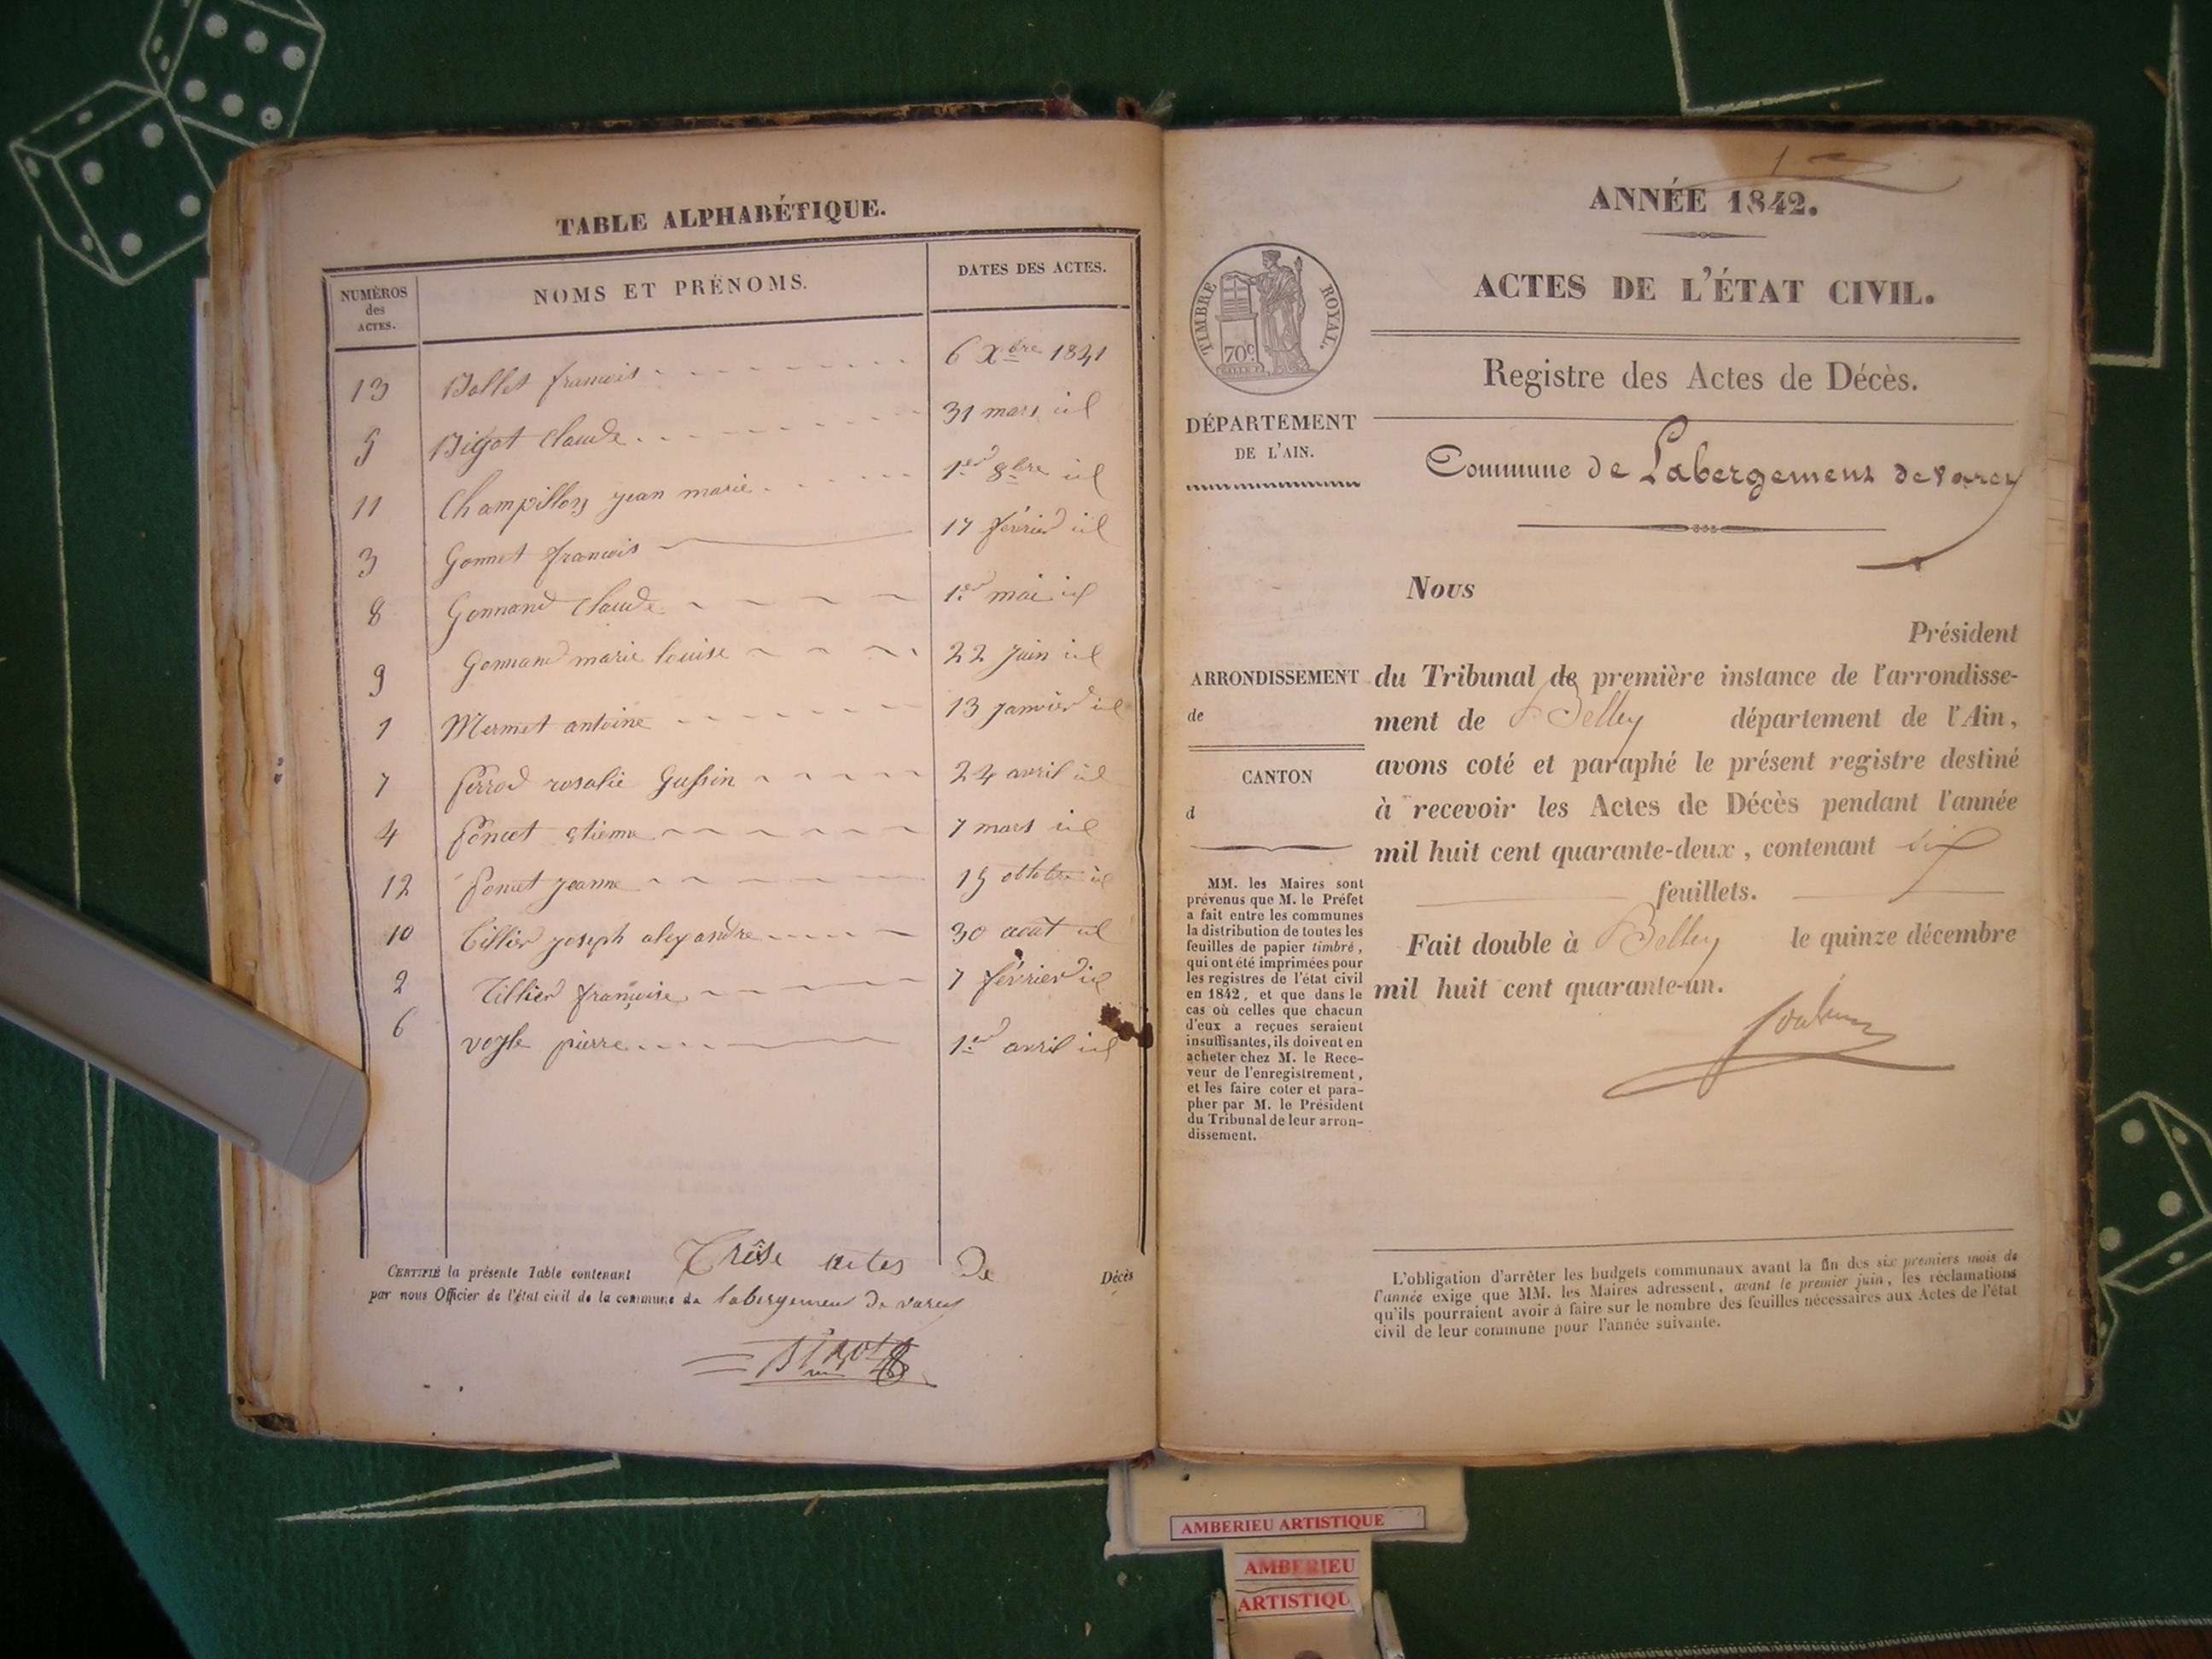 TABLE ALPHABÉTIQUE.
NUMÉROS des ACTES.
NOMS ET PRÉNOMS.
DATES DES ACTES.
13 Bollet francois 6 Xbre 1841
5 Bigot Claude 31 mars id
11 Champillon jean marie 1er 8bre id
3 Gonnet francois 17 février id
8 Gonnand Claude 1er mai id
9 Gonnand marie louise 22 juin id
1 Mermet antoine 13 janvier id
7 Perrod rosalie 24 avril id
4 Poncet etienne 7 mars id
12 Poncet jeanne 15 octobre id
10 Tillier joseph alexandre 30 août id
2 Tillier françoise 7 février id
6 vogle pierre 1er avril id
CERTIFIÉ la présente Table contenant Treise actes de Décès
par nous Officier de l'état civil de la commune de labergement de varey
Bigot
ANNÉE 1842.
ACTES DE L'ÉTAT CIVIL.
Registre des Actes de Décès.
Commune de Labergement de varey
TIMBRE ROYAL.
70c
DÉPARTEMENT
DE L'AIN.
ARRONDISSEMENT
de
CANTON
d
MM. les Maires sont
prévenus que M. le Préfet
a fait entre les communes
la distribution de toutes les
feuilles de papier timbré,
qui ont été imprimées pour
les registres de l'état civil
en 1842, et que dans le
cas où celles que chacun
d'eux a reçues seraient
insuffisantes, ils doivent en
acheter chez M. le Rece-
veur de l'enregistrement,
et les faire coter et para-
pher par M. le Président
du Tribunal de leur arron-
dissement.
Nous
Président
du Tribunal de première instance de l'arrondisse-
ment de Belley département de l'Ain,
avons coté et paraphé le présent registre destiné
à recevoir les Actes de Décès pendant l'année
mil huit cent quarante-deux, contenant dix
feuillets.
Fait double à Belley le quinze décembre
mil huit cent quarante-un.
L'obligation d'arrêter les budgets communaux avant la fin des six premiers mois de
l'année exige que MM. les Maires adressent, avant le premier juin, les réclamations
qu'ils pourraient avoir à faire sur le nombre des feuilles nécessaires aux Actes de l'état
civil de leur commune pour l'année suivante.
AMBERIEU ARTISTIQUE
AMBERIEU
ARTISTIQU